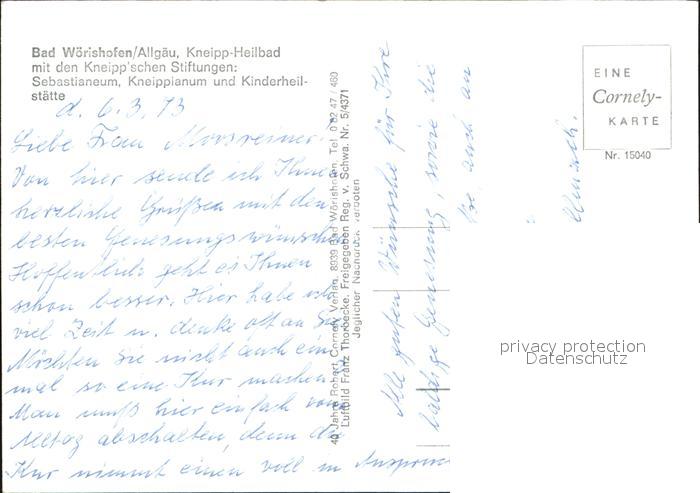 Bad Wörishofen/Allgäu, Kneipp-Heilbad
mit den Kneipp'schen Stiftungen:
Sebastianeum, Kneippianum und Kinderheil-
stätte
d. 6.3.73
Liebe Frau
Von hier sende ich Ihnen
herzliche Grüßen mit den
besten Genesungswünschen
Hoffentlich geht es Ihnen
schon besser. Hier habe ich
viel Zeit u. denke oft an Sie
Möchten Sie nicht auch ein
mal so eine Kur machen
Man muß hier einfach vom
Alltag abschalten, denn die
Kur nimmt einen voll in Anspruch
40 Jahre Robert Cornely Verlag, 8939 Bad Wörishofen, Tel. 0 82 47 / 460
Luftbild Franz Thorbecke. Freigegeben Reg. v. Schwa. Nr. 5/4371
Jeglicher Nachdruck verboten
Alle guten Wünsche für Ihre
baldige Genesung, sowie die
auch an
EINE
Cornely-
KARTE
Nr. 15040
privacy protection
Datenschutz